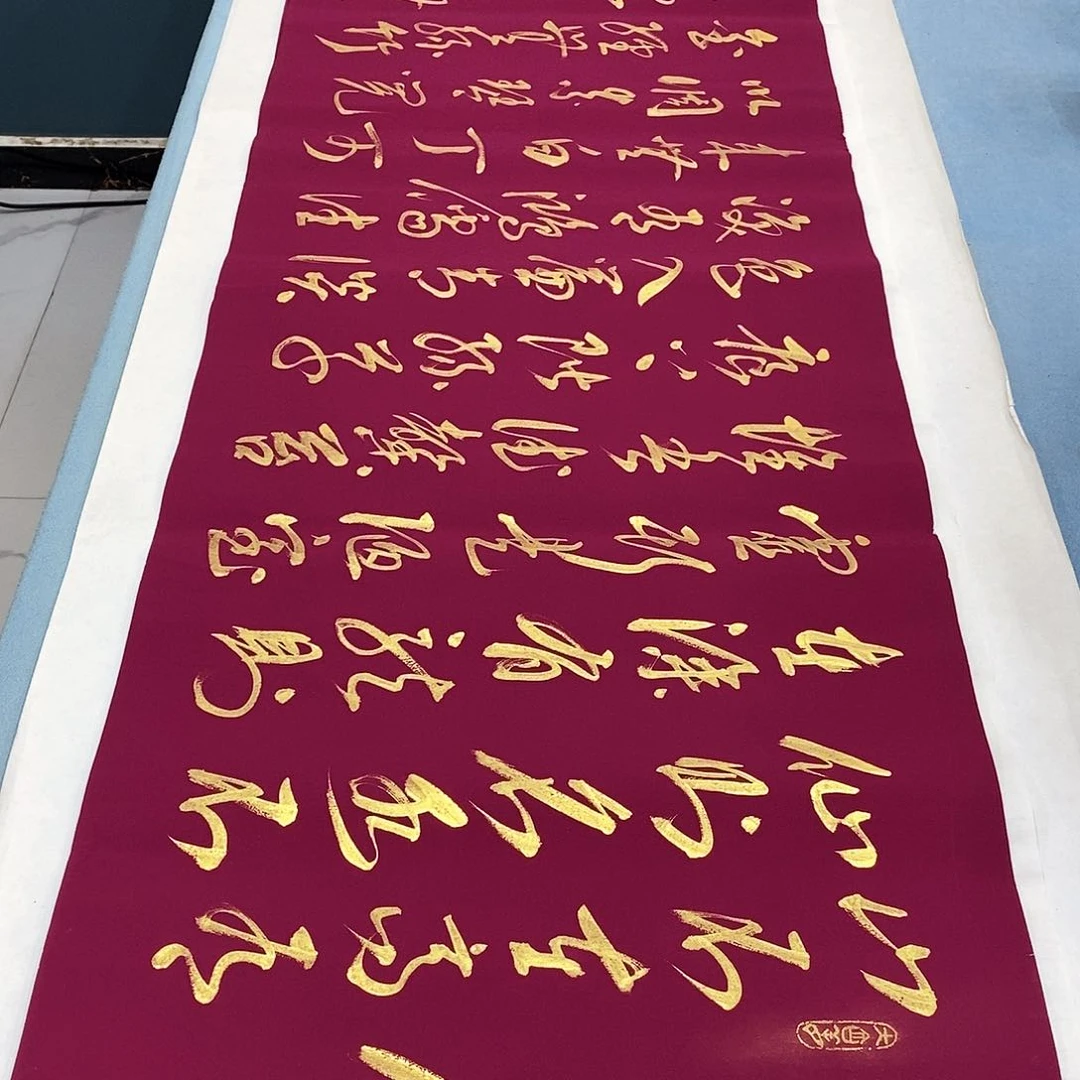 山不在高有
仙則名水不
在深有龍則
靈斯是陋室
惟吾德馨苔
痕上階綠草
色入簾青談
笑有鴻儒往
來無白丁可
以調素琴閱
金經無絲竹